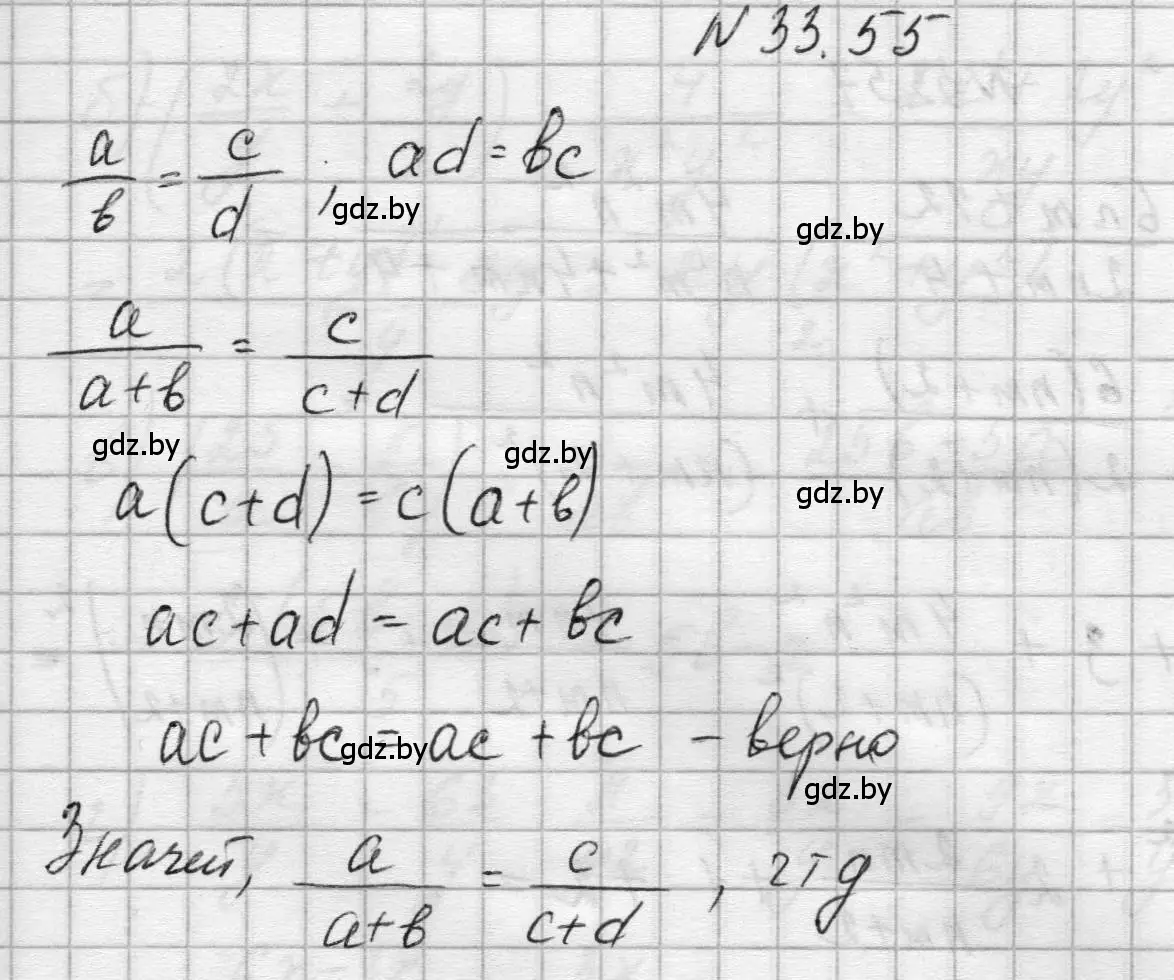 N 33.55
a/b = c/d , ad = bc
gdz.by
gdz.by
a/(a+b) = c/(c+d)
gdz.by
gdz.by
a(c+d) = c(a+b)
gdz.by
ac+ad = ac+bc
ac+bc = ac+bc - верно
gdz.by
gdz.by
Значит, a/(a+b) = c/(c+d) , чтд